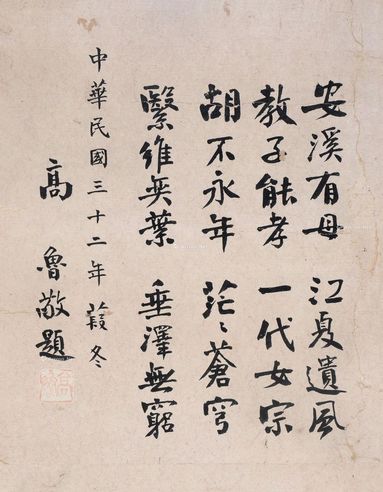 安溪有母 江夏遺風
教子能孝 一代女宗
胡不永年 茫〻蒼穹
繄維奕葉 垂澤無窮
中華民國三十二年 冬
高魯敬題